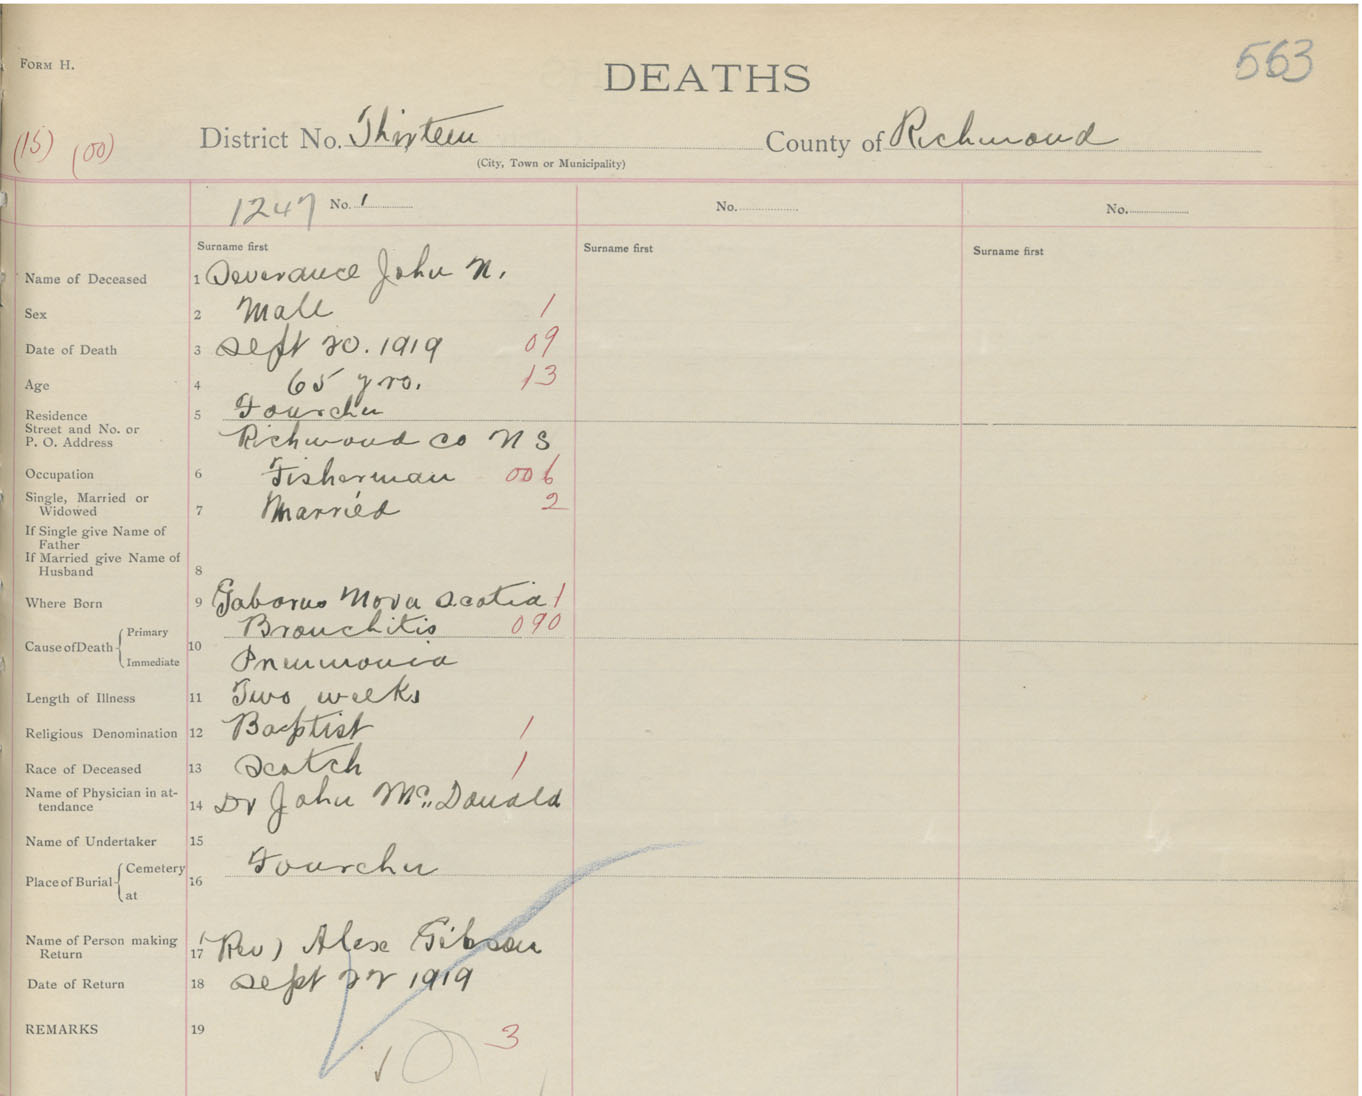 FORM H.
563
DEATHS
(15) (00)
District No. Thirteen
County of Richmond
(City, Town or Municipality)
1247 No. 1
No.
No.
Surname first
Surname first
Surname first
Name of Deceased 1 Severance John N.
Sex 2 Male 1
Date of Death 3 Sept 20. 1919 09
Age 4 65 yrs. 13
Residence 5 Fourchu
Street and No. or
P. O. Address Richmond Co N S
Occupation 6 Fisherman 006
Single, Married or
Widowed 7 Married 2
If Single give Name of
Father
If Married give Name of
Husband 8
Where Born 9 Gabarus Nova Scotia 1
Cause of Death Primary 10 Bronchitis 090
Immediate Pneumonia
Length of Illness 11 Two weeks
Religious Denomination 12 Baptist 1
Race of Deceased 13 Scotch 1
Name of Physician in at-
tendance 14 Dr John Mc Donald
Name of Undertaker 15
Place of Burial Cemetery 16 Fourchu
at
Name of Person making
Return 17 (Rev) Alex Gibson
Date of Return 18 Sept 22 1919
REMARKS 19
3